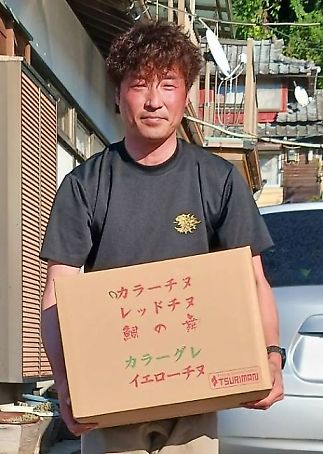 カラーチヌ
レッドチヌ
鯛の舞
カラーグレ
イエローチヌ
TSURIMAN